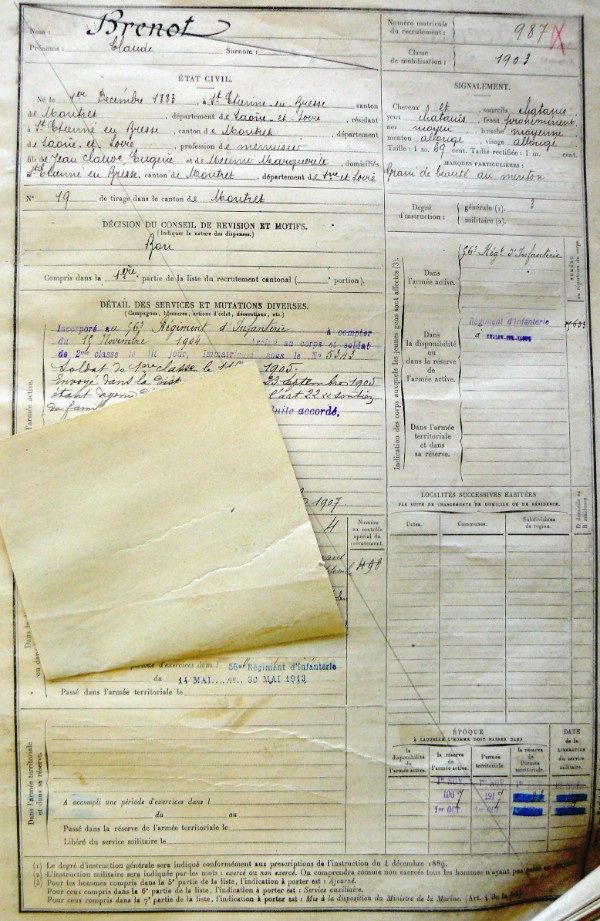 Nom : Brenot
Prénoms : Claude Surnom :
Numéro matricule
du recrutement : 987
Classe
de mobilisation : 1903
ÉTAT CIVIL.
Né le 1er Décembre 1883, à St Etienne en Bresse, canton
de Montret, département de Saône et Loire, résidant
à St Etienne en Bresse, canton de Montret, département
de Saône et Loire, profession de menuisier
fils de Jean Claude Eugène et de Meunier Marguerite, domiciliés
à St Etienne en Bresse, canton de Montret, département de S. et Loire
N° 19 de tirage dans le canton de Montret
SIGNALEMENT.
Cheveux et sourcils châtains
yeux châtains, front proéminent
nez moyen, bouche moyenne
menton allongé, visage allongé
Taille : 1 m. 69 cent. Taille rectifiée : 1 m. cent.
MARQUES PARTICULIÈRES :
Grain de beauté au menton
Degré
d'instruction :
générale (1). 3
militaire (2).
DÉCISION DU CONSEIL DE REVISION ET MOTIFS.
(Indiquer la nature des dispenses.)
Bon
Compris dans la 1ère partie de la liste du recrutement cantonal ( portion).
DÉTAIL DES SERVICES ET MUTATIONS DIVERSES.
(Campagnes, blessures, actions d'éclat, décorations, etc.)
Incorporé au 56e Régiment d'Infanterie à compter
du 15 Novembre 1904 au corps et soldat
de 2me classe le dit jour, Immatriculé sous le No 5343
Soldat de 1ère classe le 1905,
Envoyé dans la 23 septembre 1905
étant l'art 22
de famille duite accordé,
1907
Numéro
au contrôle
spécial du
recrutement.
498
56me Régiment d'Infanterie
14 MAI au 30 MAI 1913
Passé dans l'armée territoriale le
Dans l'armée territoriale
et dans sa réserve.
A accompli une période d'exercices dans l
du au
Passé dans la réserve de l'armée territoriale le
Libéré du service militaire le
Indication des corps auxquels les jeunes gens sont affectés (3).
Dans
l'armée active.
56e Régt d'Infanterie
Dans
la disponibilité
ou dans la
réserve de
l'armée active.
Régiment d'Infanterie
à
Dans l'armée
territoriale
et dans
sa réserve.
LOCALITÉS SUCCESSIVES HABITÉES
PAR SUITE DE CHANGEMENTS DE DOMICILE OU DE RÉSIDENCE.
Dates.
Communes.
Subdivisions
de région.
D domicile ou
R résidence.
ÉPOQUE
À LAQUELLE L'HOMME DOIT PASSER DANS
DATE
de la
LIBÉRATION
du service
militaire.
la
disponibilité
de l'armée active.
la réserve
de
l'armée active.
l'armée
territoriale.
la réserve
de
l'armée
territoriale.
1907
1917
1er OCT
(1) Le degré d'instruction générale sera indiqué conformément aux prescriptions de l'Instruction du 4 décembre 1889.
(2) L'instruction militaire sera indiquée par les mots : exercé ou non exercé. On comprendra comme non exercés tous les hommes n'ayant pas
(3) Pour les hommes compris dans la 5e partie de la liste, l'indication à porter est : Ajourné.
Pour ceux compris dans la 6e partie de la liste, l'indication à porter est : Service auxiliaire.
Pour ceux compris dans la 7e partie de la liste, l'indication à porter est : Mis à la disposition du Ministre de la Marine. (Art. 4 de la